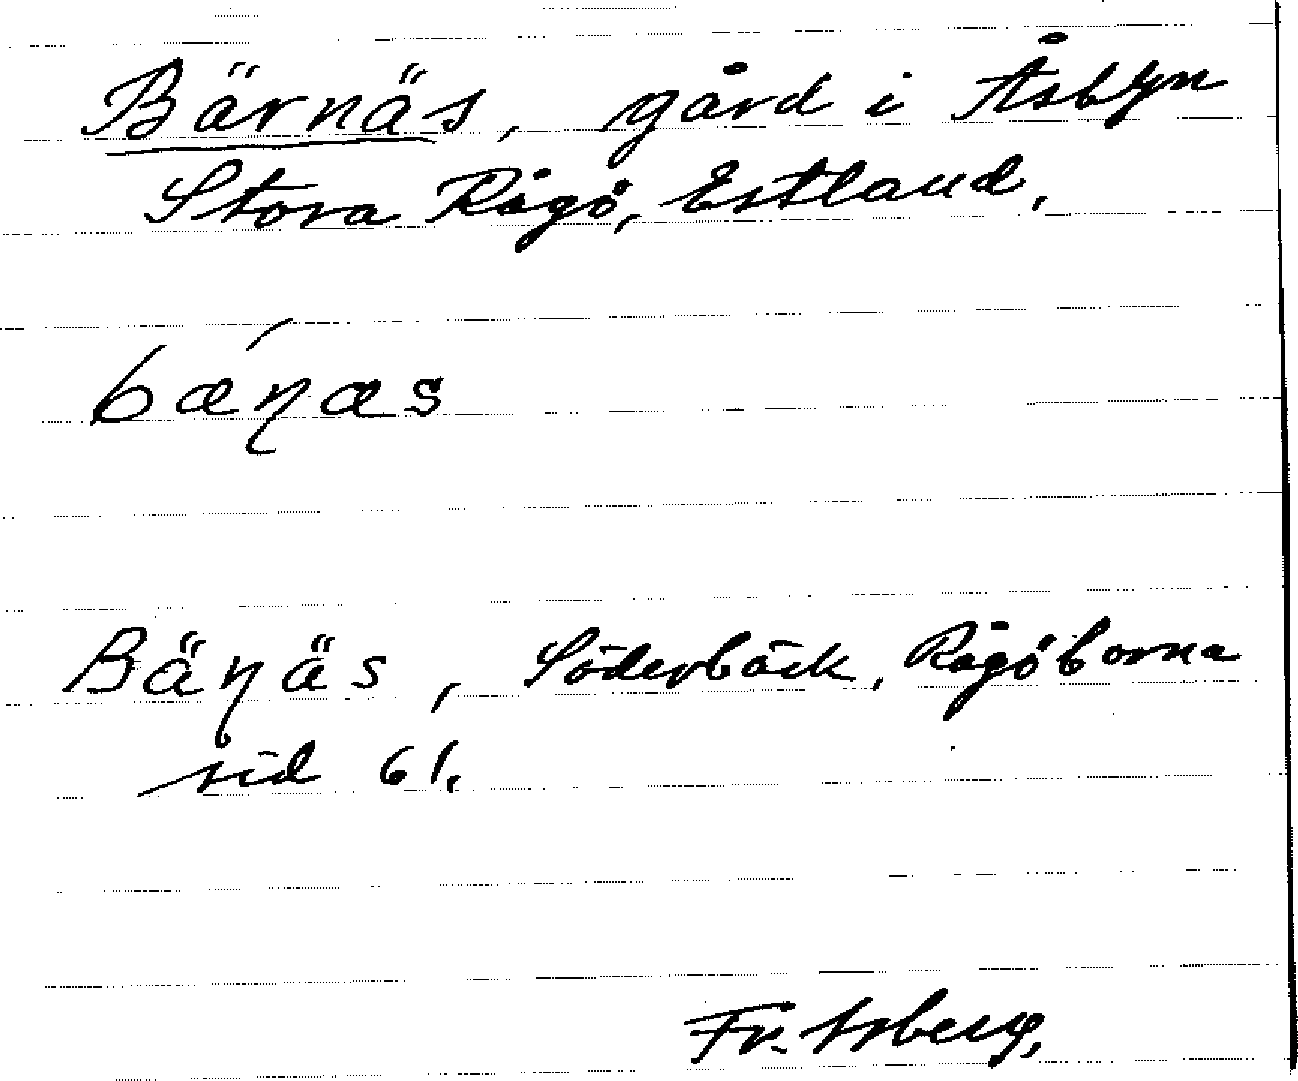 Bärnäs, gård i Åsbyn
Stora Rågö, Estland.
bæɳæs
Bäɳäs, Söderbäck, Rågöborna
sid 61.
Fr.